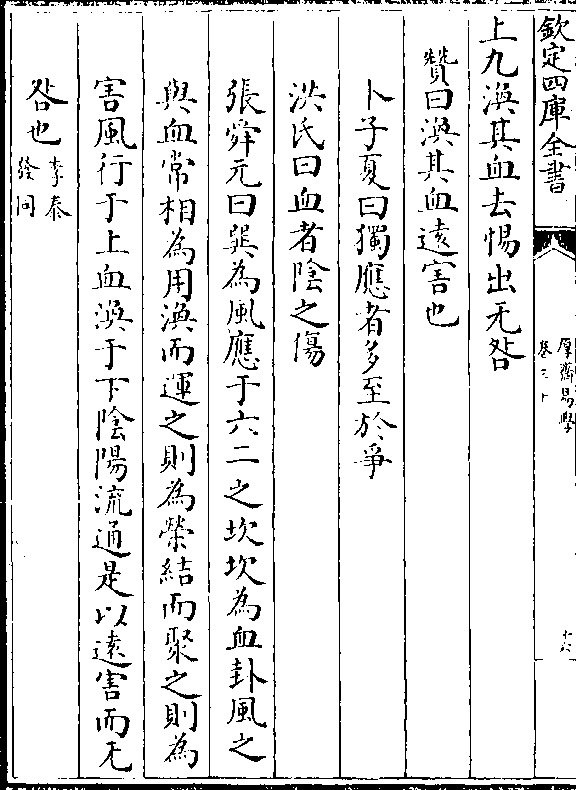 欽定四庫全書
厚齋易學
卷三十
十六
上九渙其血去惕出无咎
贊曰渙其血遠害也
卜子夏曰獨應者多至於爭
洪氏曰血者陰之傷
張舜元曰巽為風應于六二之坎坎為血卦風之
與血常相為用渙而運之則為榮結而聚之則為
害風行于上血渙于下陰陽流通是以遠害而无
咎也李泰
發同